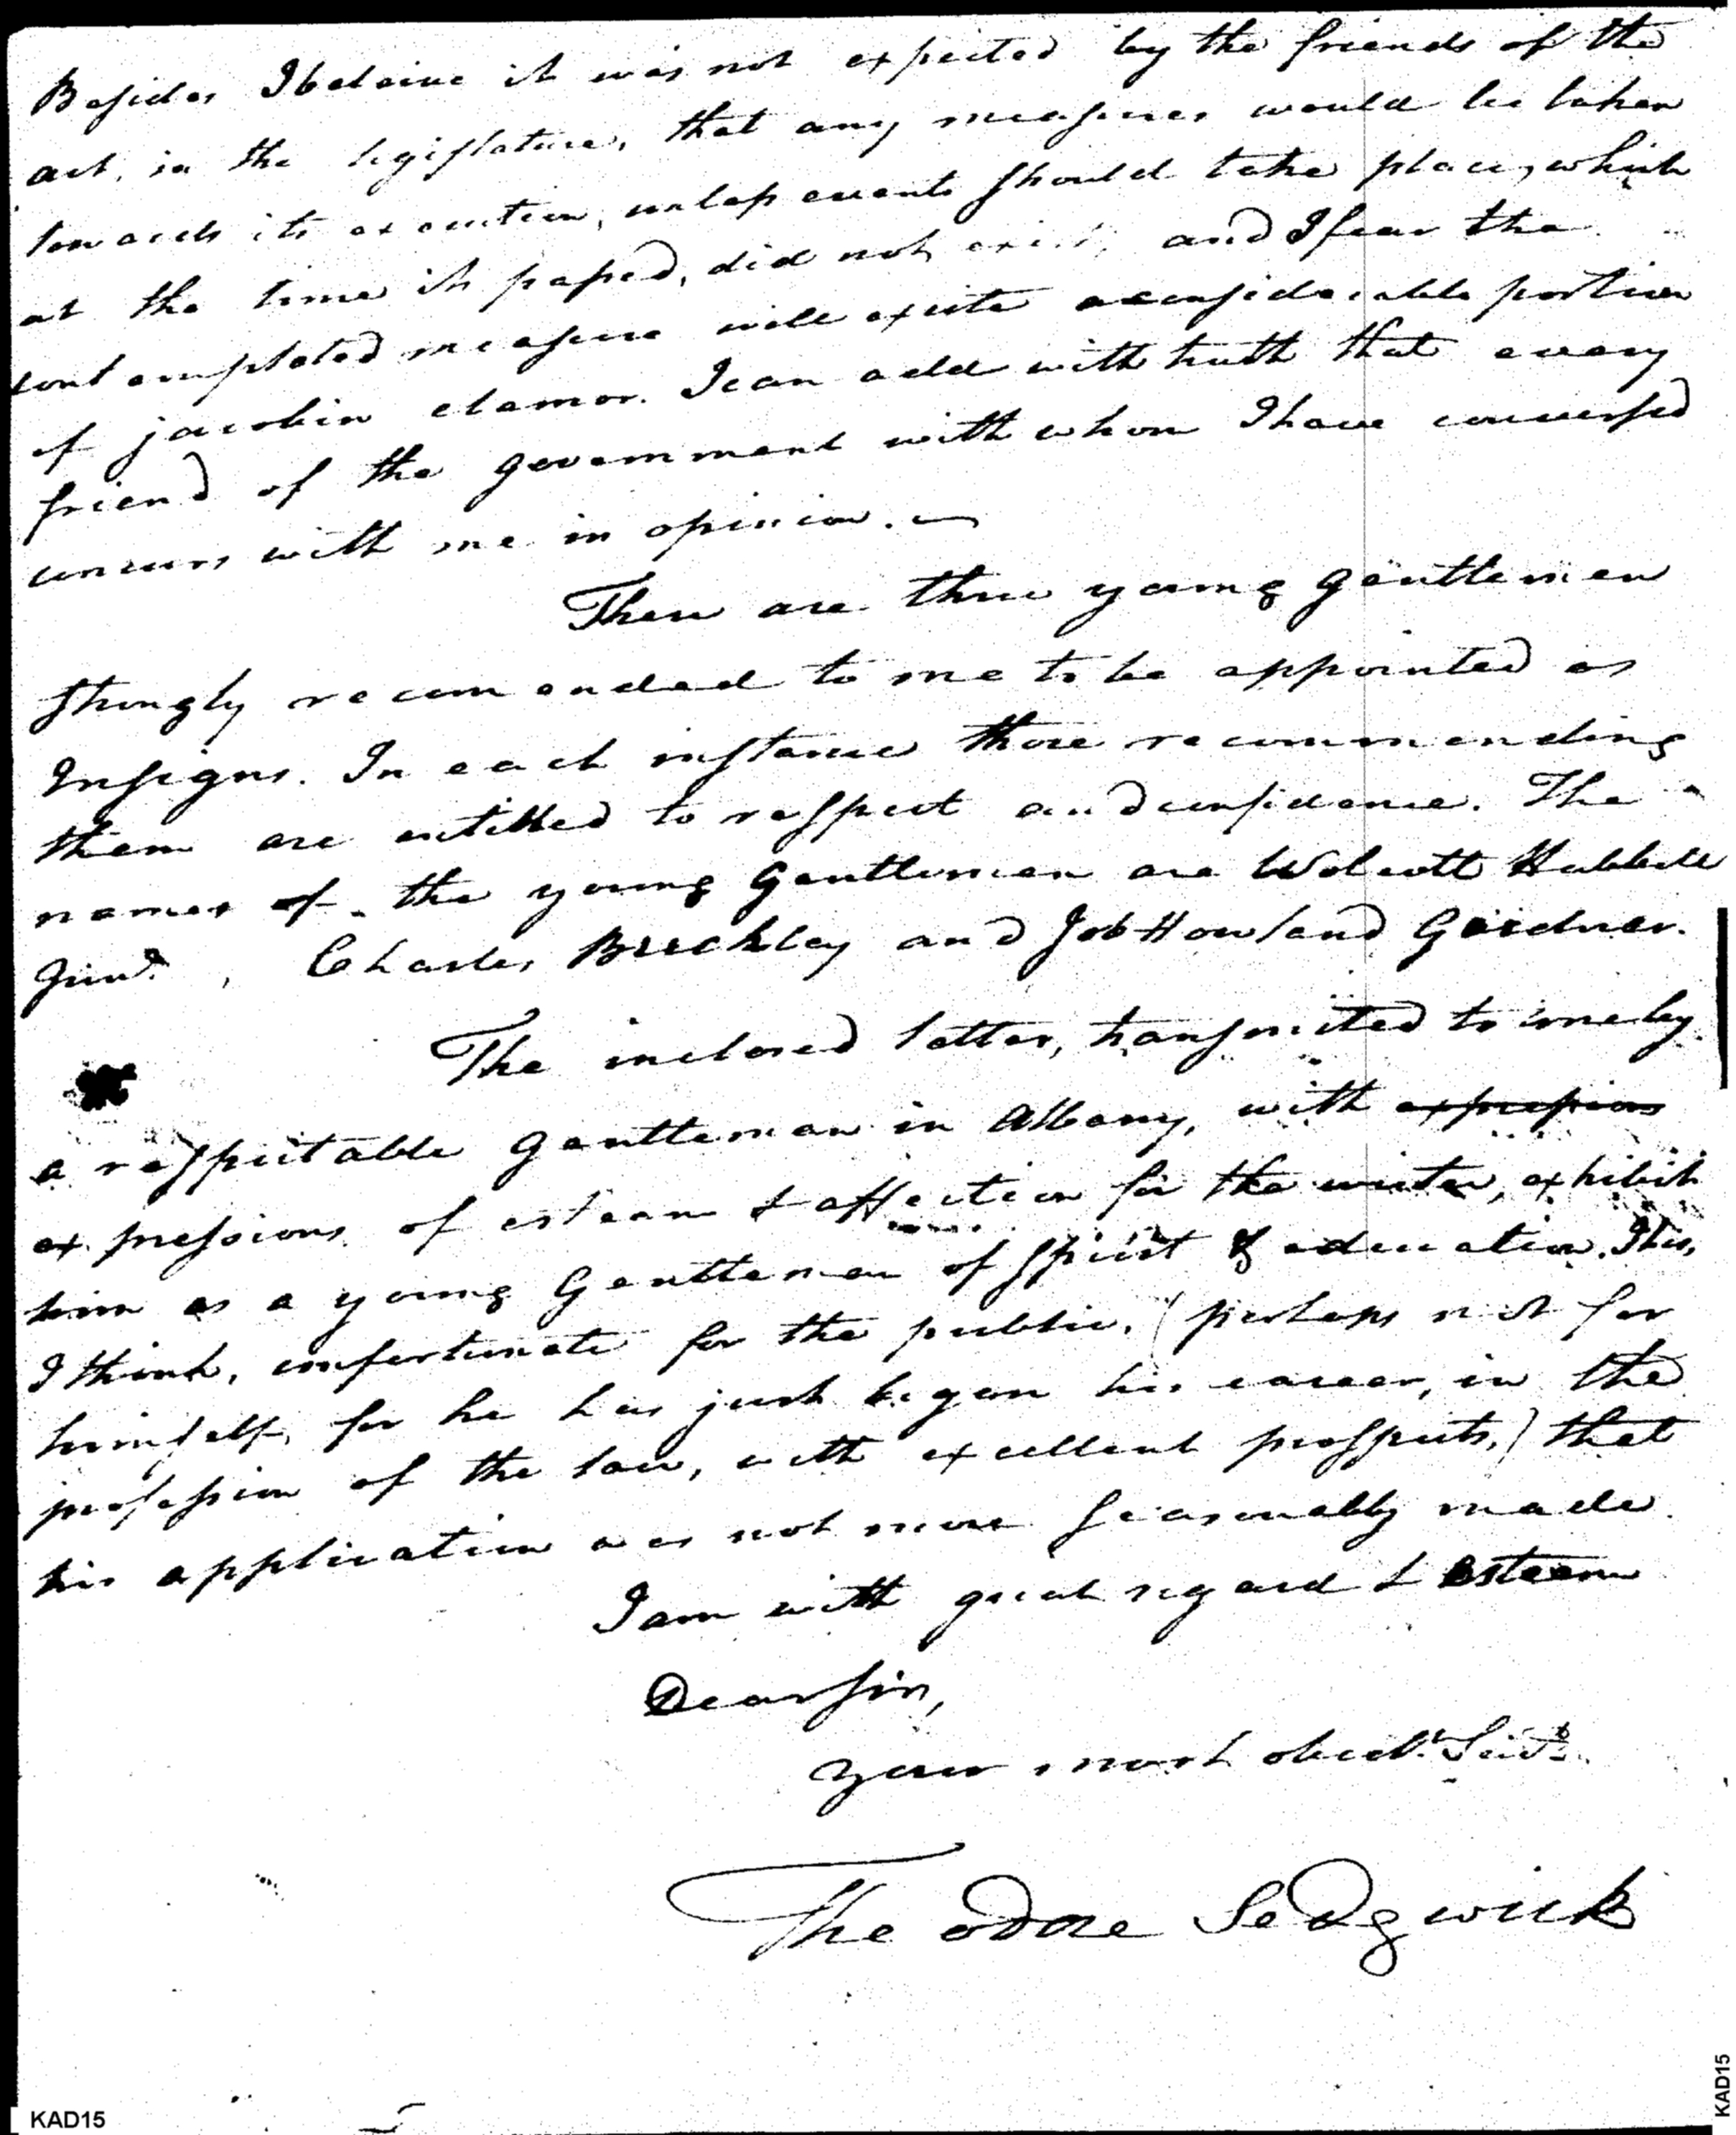 Besides I beleive it was not expected by the friends of the
act, in the legislature, that any measures would be taken
towards its execution, unless events should take place, which
at the time it passed, did not exist, and I fear the
contemplated measure will excite a considerable portion
of jacobin clamor. I can add with truth that every
friend of the government with whom I have conversed
concurs with me in opinion. —
There are three young gentlemen
strongly recommended to me to be appointed as
Insigns. In each instance those recommending
them are entitled to respect and confidence. The
names of the young Gentlemen are Wolcott Hubbell
Junr., Charles Breckley and Job Howland Gardner.
The inclosed letter, transmited to me by
a respectable gentleman in Albany, with expressions
expressions of esteem & affection for the writer, exhibit
him as a young Gentleman of spirit & education. It is,
I think, unfortunate for the public, (perhaps not for
himself, for he has just began his career, in the
profession of the law, with excellent prospects,) that
his application was not more seasonably made.
I am with great regard & esteem
Dear sir,
your most obedt. Servt.
Theodore Sedgwick
KAD15
KAD15